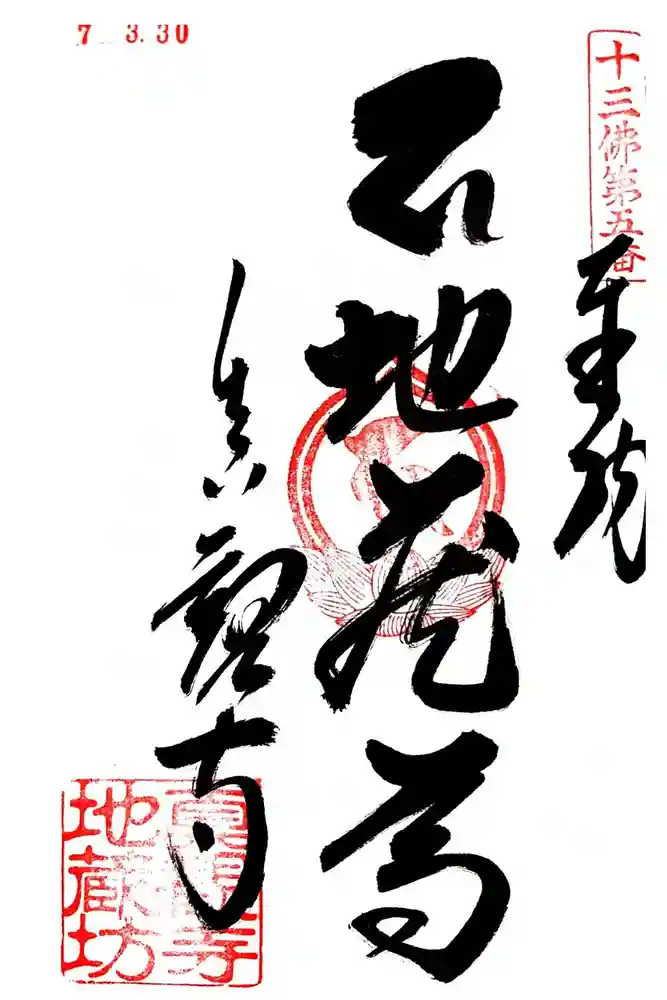 7 3.30
十三佛第五番
奉拝
石地蔵尊
真観寺
真観寺
地蔵坊